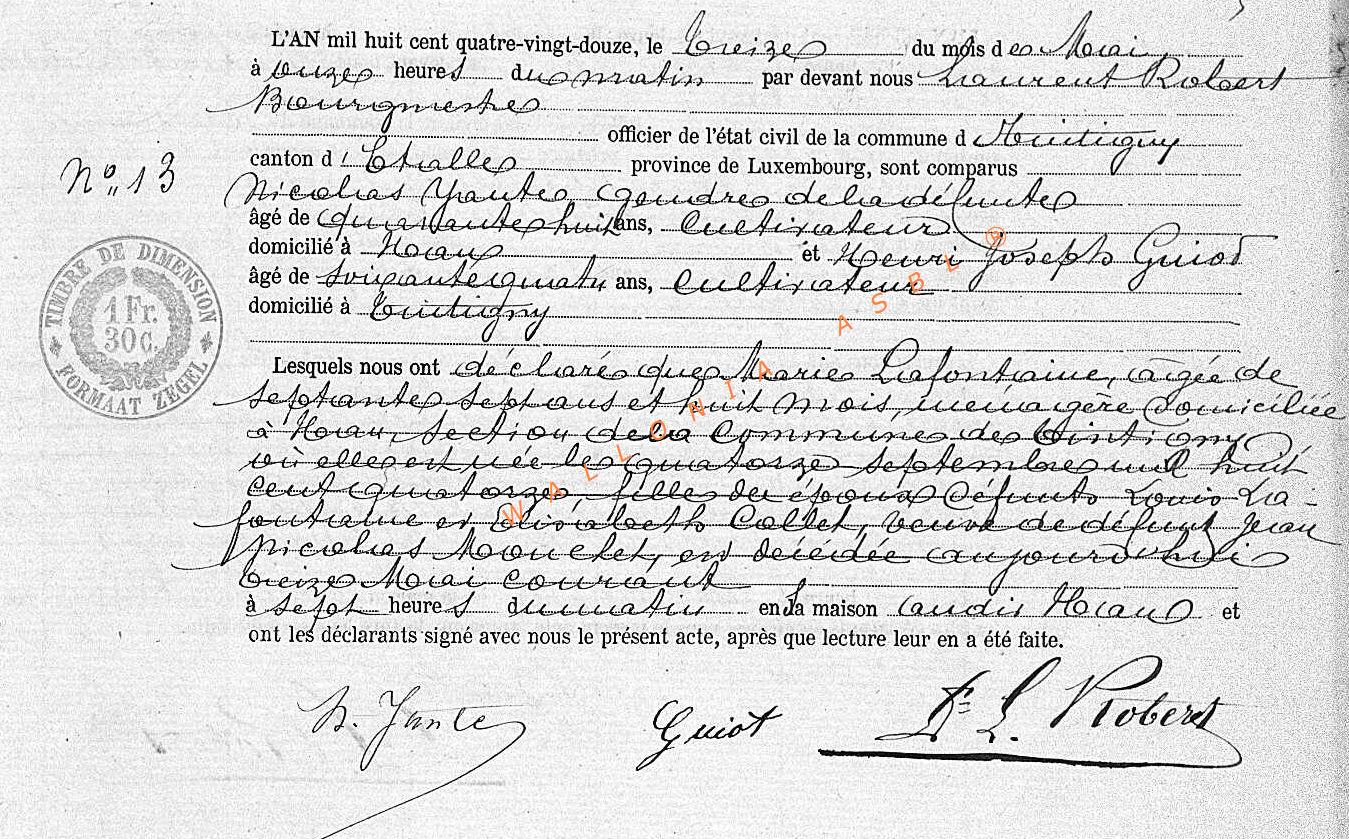 L'AN mil huit cent quatre-vingt-douze, le treize du mois de Mai
à onze heures du matin par devant nous Laurent Robert
Bourgmestre
officier de l'état civil de la commune d Tintigny
N° 13
canton d' Etalle province de Luxembourg, sont comparus
Nicolas Yante, gendre de la défunte
âgé de quarante huit ans, Cultivateur
domicilié à et Henri Joseph Guiot
âgé de soixante quatre ans, Cultivateur
domicilié à Tintigny
TIMBRE DE DIMENSION
1 Fr.
30 C.
FORMAAT ZEGEL
Lesquels nous ont déclaré que Marie Lafontaine, âgée de
septante sept ans et huit mois, ménagère domiciliée
à section de la Commune de Tintigny
où elle est née le quatorze septembre mil huit
cent quatorze, fille des époux défunts Louis La-
fontaine et Elisabeth Collet, veuve de défunt Jean
Nicolas est décédée aujourd'hui
treize Mai courant
à sept heures du matin en sa maison audit et
ont les déclarants signé avec nous le présent acte, après que lecture leur en a été faite.
N. Yante Guiot L. Robert
WALLONIA ASBL ®